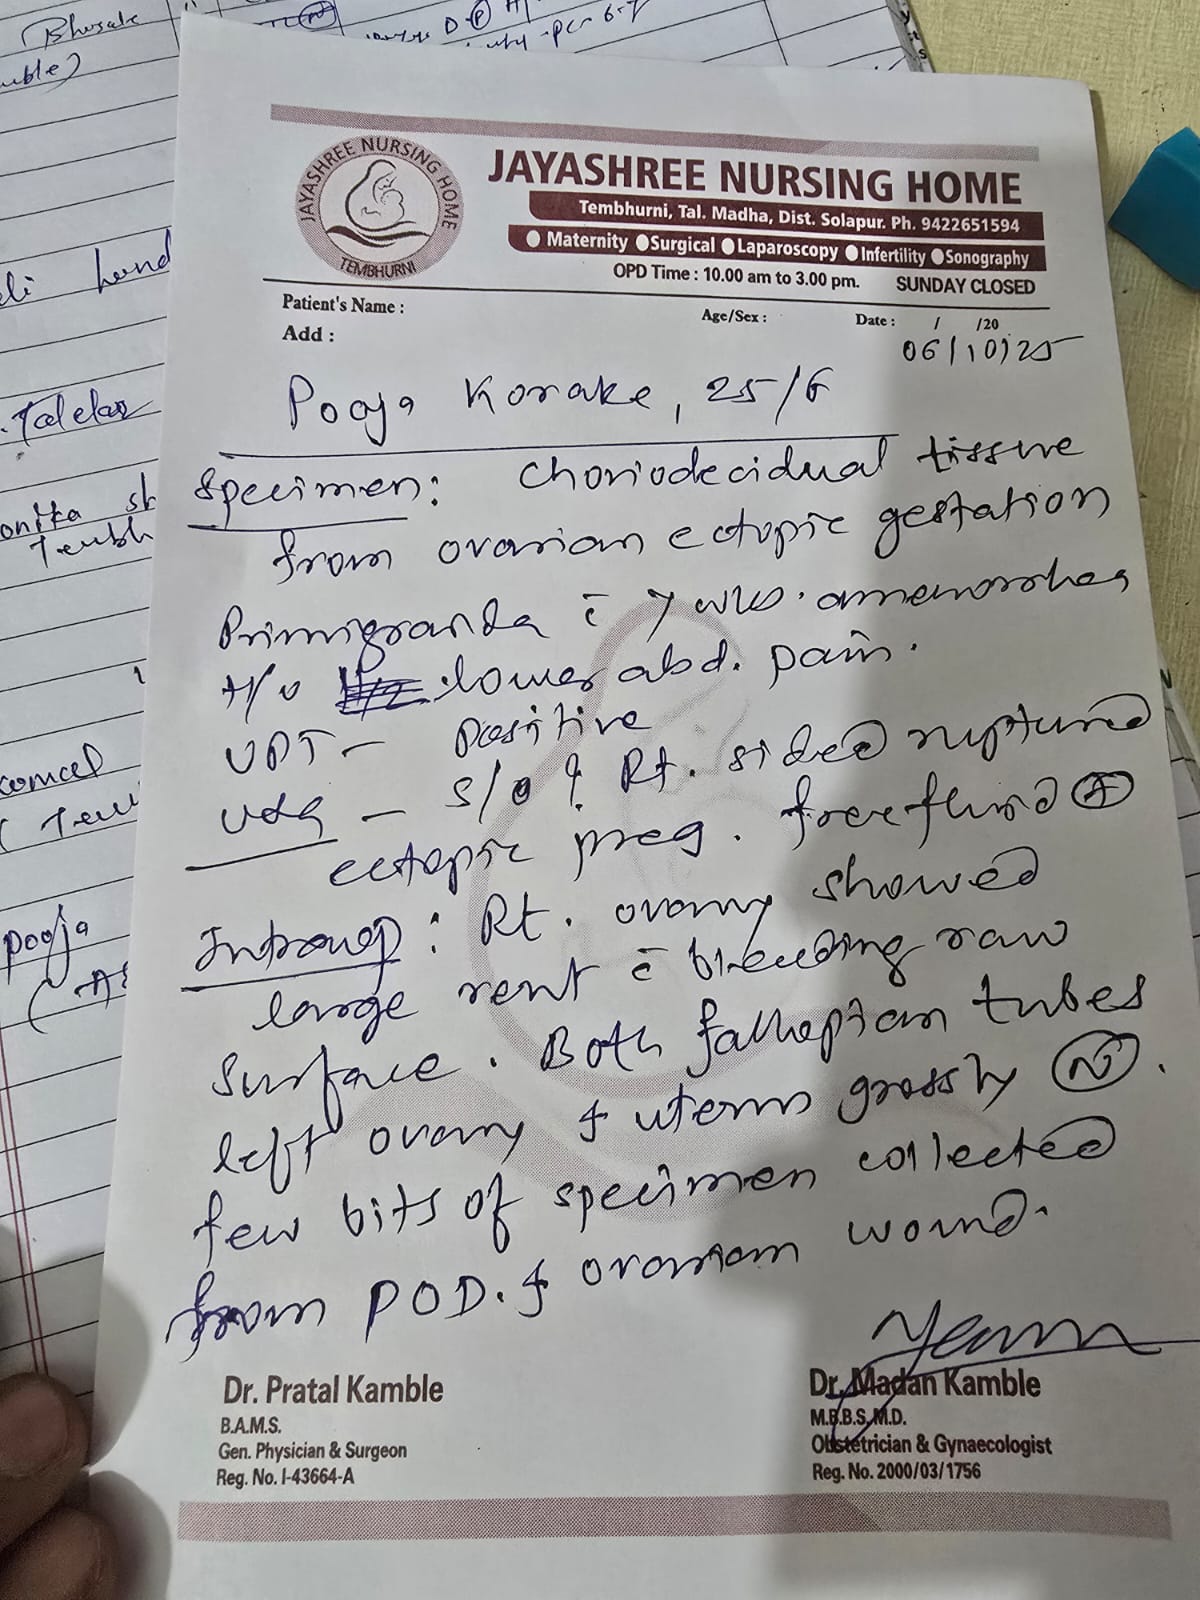 Bhusale
JAYASHREE NURSING HOME
TEMBHURNI
JAYASHREE NURSING HOME
Tembhurni, Tal. Madha, Dist. Solapur. Ph. 9422651594
Maternity Surgical Laparoscopy Infertility Sonography
OPD Time : 10.00 am to 3.00 pm. SUNDAY CLOSED
Patient's Name : Age/Sex : Date : / /20
Add : 06/10/25
Pooja Korake, 25/F
Specimen: Choriodecidual tissue
from ovarian ectopic gestation
Primigravida c̄ 7 wks. amenorrhea
H/o lower abd. pain.
UPT - Positive
USG - S/o ? Rt. sided ruptured
ectopic preg. free fluid ⊕
Intraop: Rt. ovary showed
large rent c̄ bleeding raw
surface. Both fallopian tubes
left ovary & uterus grossly Ⓝ.
few bits of specimen collected
from POD. & ovarian wound.
Dr. Pratal Kamble
B.A.M.S.
Gen. Physician & Surgeon
Reg. No. I-43664-A
Dr. Madan Kamble
M.B.B.S, M.D.
Obstetrician & Gynaecologist
Reg. No. 2000/03/1756
pooja